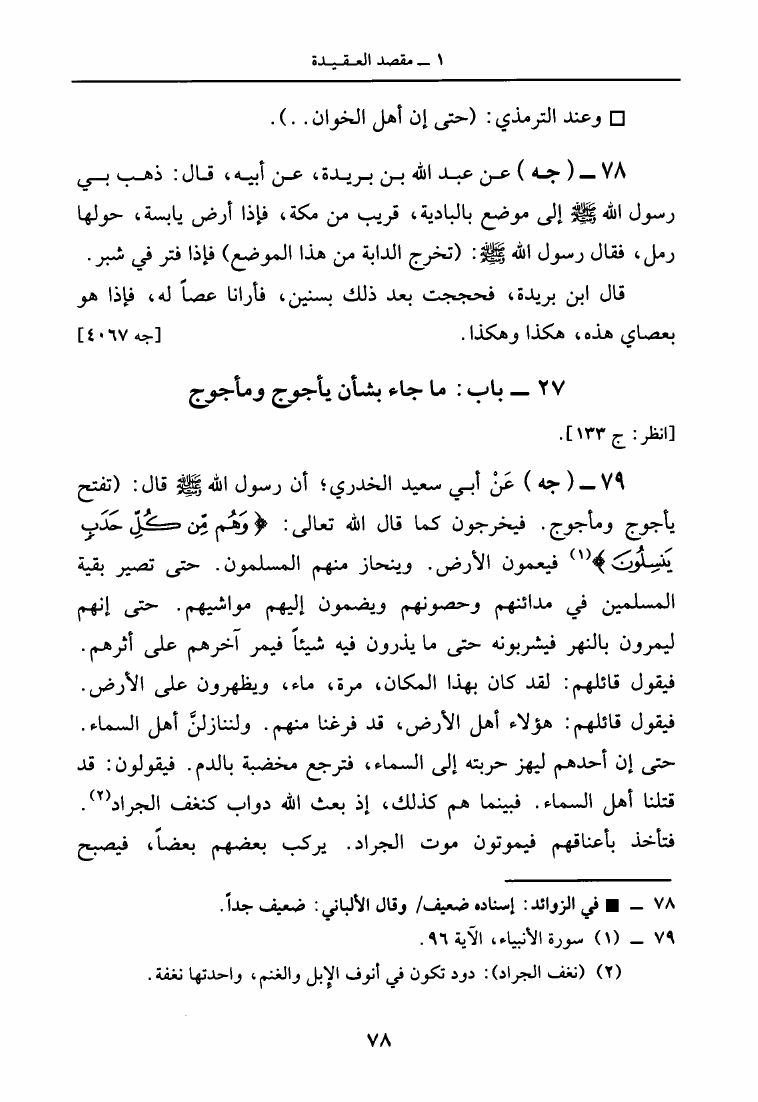 ١ ــ مقصد العـقـيـدة
□ وعند الترمذي: (حتى إن أهل الخوان. .).
٧٨ ــ (جه) عـن عبـد الله بـن بـريـدة، عـن أبيـه، قـال: ذهـب بـي
رسول الله ﷺ إلى موضع بالبادية، قريب من مكة، فإذا أرض يابسة، حولها
رمل، فقال رسول الله ﷺ: (تخرج الدابة من هذا الموضع) فإذا فتر في شبر.
قال ابن بريدة، فحججت بعد ذلك بسنين، فأرانا عصاً له، فإذا هو
بعصاي هذه، هكذا وهكذا. [جه ٤٠٦٧]
٢٧ ــ باب: ما جاء بشأن يأجوج ومأجوج
[انظر: ج ١٣٣].
٧٩ ــ (جه) عَنْ أبـي سعيد الخدري؛ أن رسول الله ﷺ قال: (تفتح
يأجوج ومأجوج. فيخرجون كما قال الله تعالى: ﴿وَهُم مِّن كُلِّ حَدَبٍ
يَنسِلُونَ﴾(١) فيعمون الأرض. وينحاز منهم المسلمون. حتى تصير بقية
المسلمين في مدائنهم وحصونهم ويضمون إليهم مواشيهم. حتى إنهم
ليمرون بالنهر فيشربونه حتى ما يذرون فيه شيئاً فيمر آخرهم على أثرهم.
فيقول قائلهم: لقد كان بهذا المكان، مرة، ماء، ويظهرون على الأرض.
فيقول قائلهم: هؤلاء أهل الأرض، قد فرغنا منهم. ولننازلنَّ أهل السماء.
حتى إن أحدهم ليهز حربته إلى السماء، فترجع مخضبة بالدم. فيقولون: قد
قتلنا أهل السماء. فبينما هم كذلك، إذ بعث الله دواب كنغف الجراد(٢).
فتأخذ بأعناقهم فيموتون موت الجراد. يركب بعضهم بعضاً، فيصبح
٧٨ ــ ■ في الزوائد: إسناده ضعيف/ وقال الألباني: ضعيف جداً.
٧٩ ــ (١) سورة الأنبياء، الآية ٩٦.
(٢) (نغف الجراد): دود تكون في أنوف الإبل والغنم، واحدتها نغفة.
٧٨